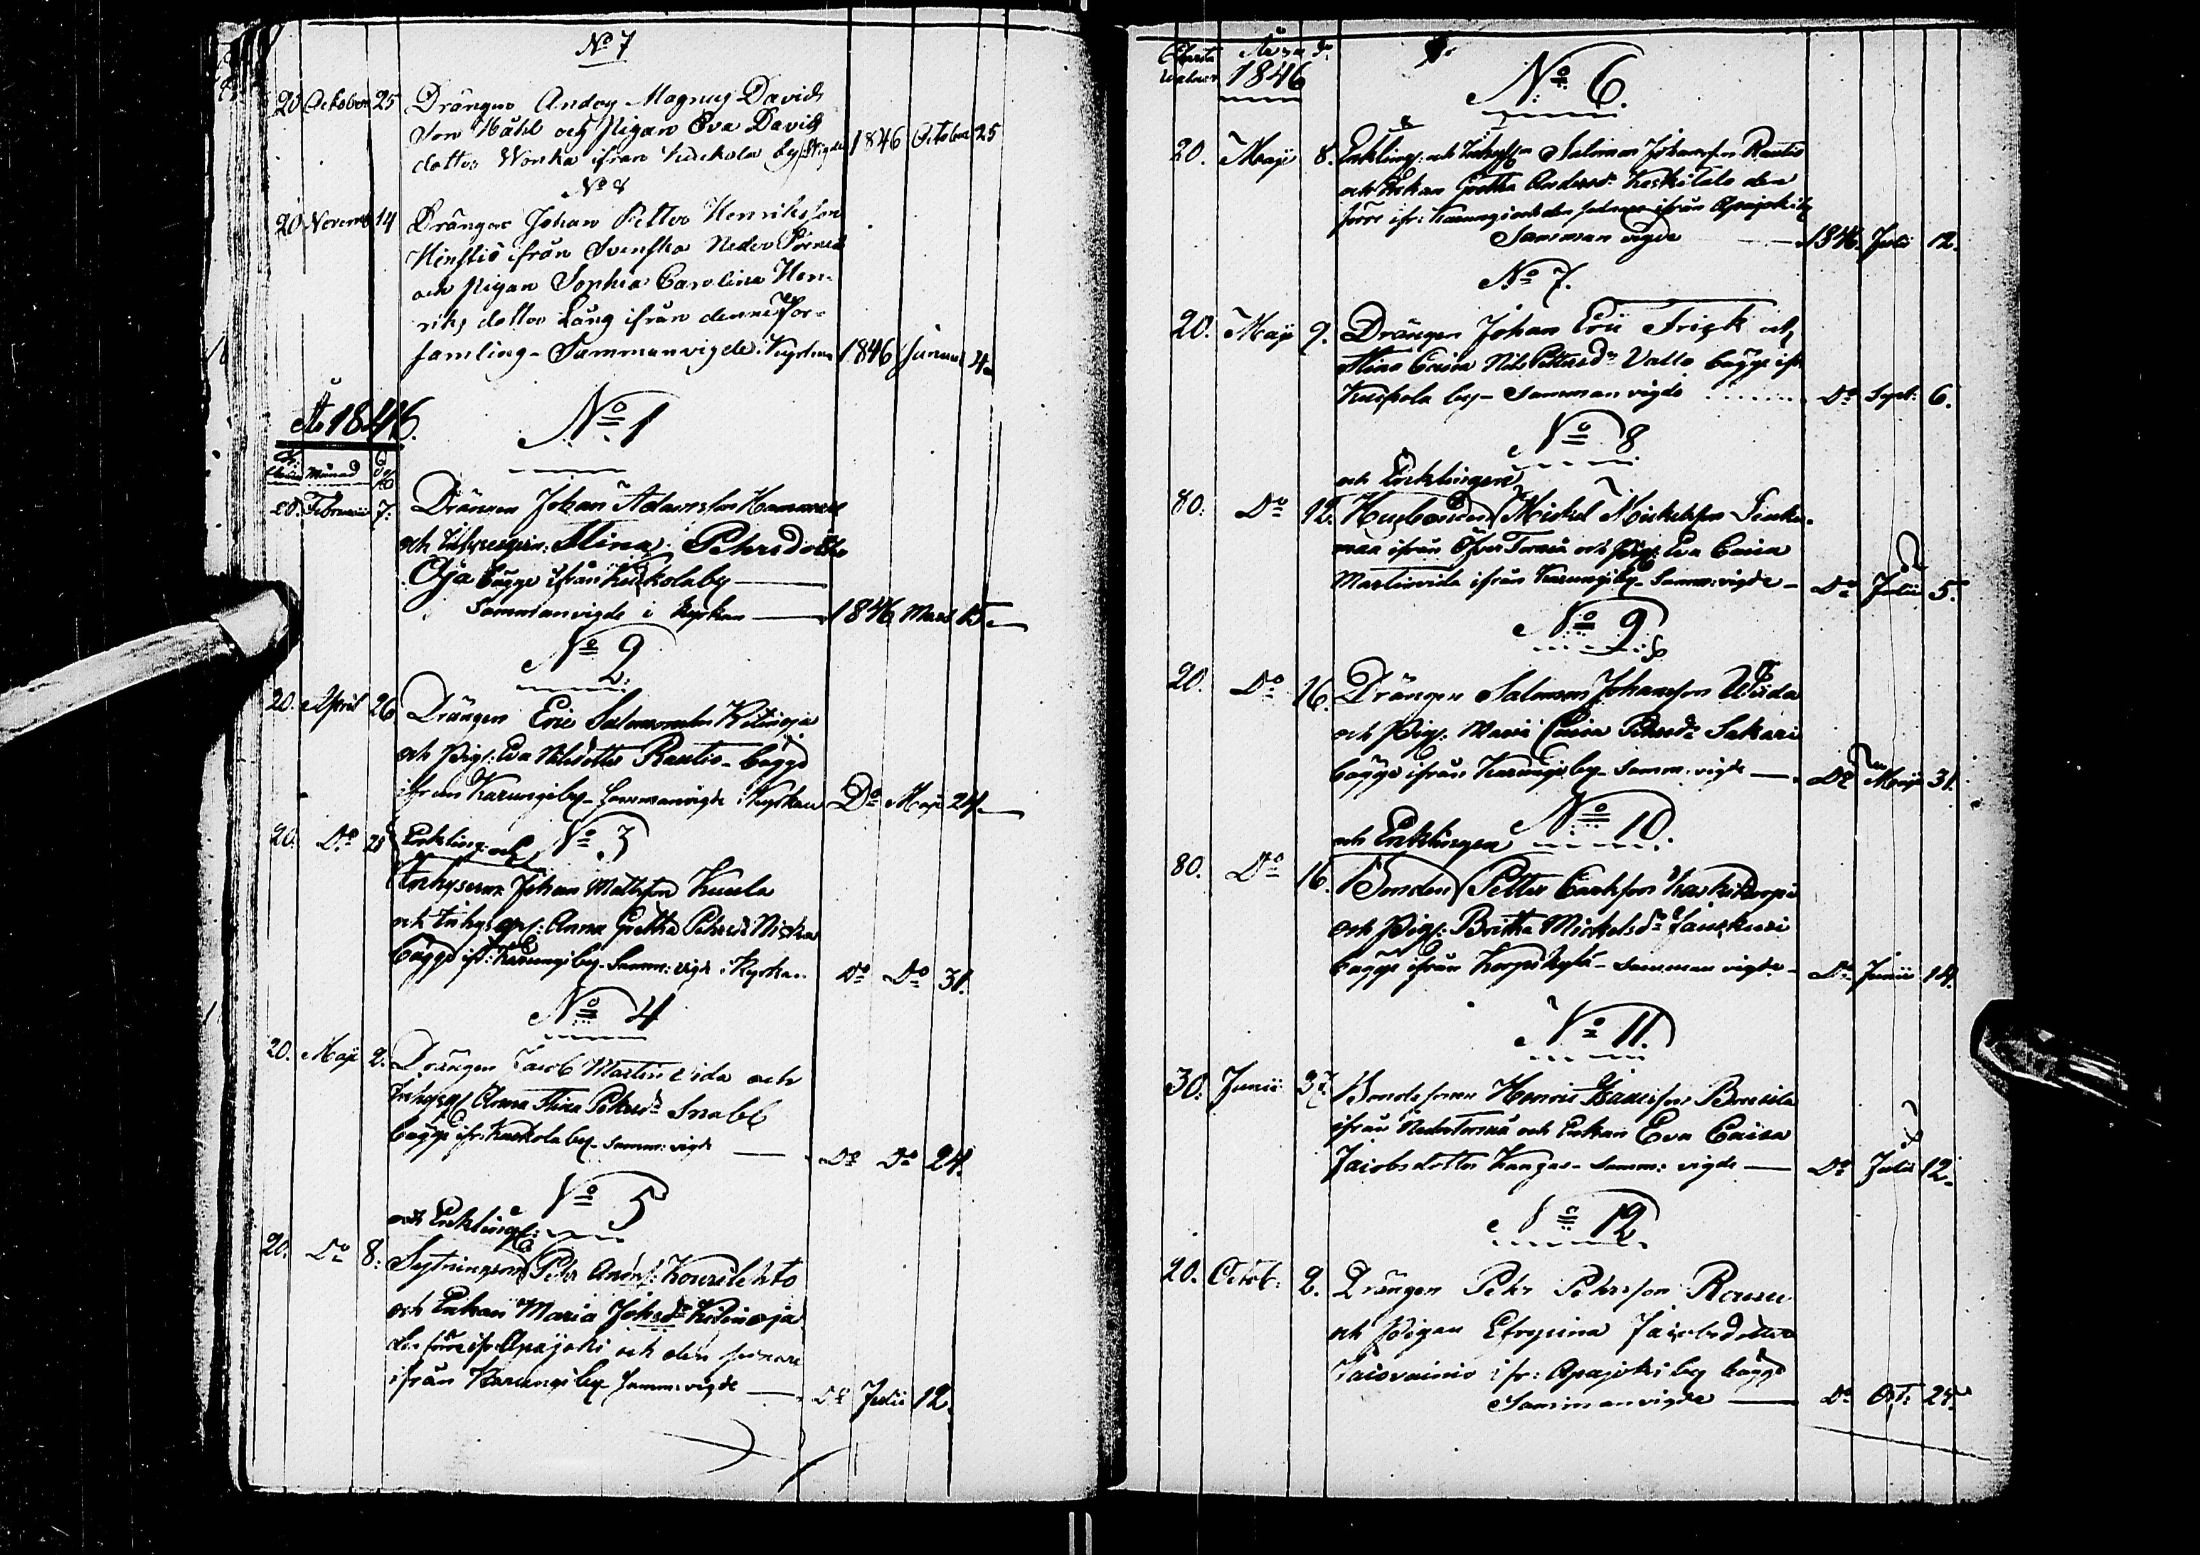 No 7
20 October 25 Drängen And: Magnus Davids
son Ståhl och Pigan Eva Davids
dotter Wonka ifrån Kuckola by 1846 October 25
No 8
20 Novemb 14 Drängen Johan Petter Henriksson
ifrån Svenska Neder Torneå
och Pigan Sophia Carolina Hen-
riks dotter Lång ifrån denne För-
samling - Sammanvigde i Kyrkan 1846 4
År 1846.
No 1
Månad
20. Februari 7. Drängen Johan Adamsson
och Stina Pehrsdotter
Oja bägge ifrån Kuckola by
Sammanvigde i Kyrkan 1846 Mars 15
No 2
20. April 26 Drängen Eric Salomonsson Kitinoja
och Pig: Eva Nilsdotter Rautio - bägge
ifrån Karungi by - Sammanvigde i Kyrkan Do Maji 24
20. Do 28 Enkling och No 3
Inhysesm Johan Mathsson Kuula
och Anna Gretha Pehrsdr Niska
bägge ifr: Karungi by - Samm: vigde i Kyrkan Do Do 31.
No 4
20. Maji 2. Drängen Jacob Martin Vida och
Anna Stina Pehrsdr Snabb
bägge ifr: Kuckola by - samm: vigde Do Do 24.
No 5
och Enkling:
20. Do 8. Sytningsm Pehr Anders: Kourilehto
och Enkan Maria Johsdr Kitinoja
den förre ifr: Apajoki och den senare
ifrån Karungi by Samm: vigde Do Julii 12.
1846
No 6.
20. Maji 8. Enkling: och Salomon Johansson Rautio
och Enkan Gretha Andersdr Keskitalo den
förre ifr: Karungi och den sednare ifrån Apajoki by
Samman vigde 1846 Julii 12.
No 7.
20. Maji 9. Drängen Johan Eric Frisk och
Stina Caisa Nils Pettersdr Vallo bägge ifr
Kuckola by - Samman vigde Do Sept: 6.
No 8
och Enklingen
80. Do 12. Husbonden Mickel Mickelsson
maa ifrån Öfver Torneå och Pig: Eva Caisa
Martinvida ifrån Karungi by - Samm: vigde - Do Julii 5.
No 9
20. Do 16. Drängen Salomon Johansson Vida
och Pig: Maria Caisa Pehrsdr Sakari
bägge ifrån Karungi by - Samm: vigde Do Maji 31.
No 10.
och Enklingen
80. Do 16. Bonden Petter Carlsson
och Pig: Britha Mickelsdr Jauskuri
bägge ifrån Korpikylä - Samman vigde - Do Junii 14.
No 11.
30. Junii 27. Bondesonen Henric
ifrån NederTorneå och Enkan Eva Caisa
Jacobsdotter Kangas - Samm: vigde Do Julii 12.
No 12
20. Octob: 2. Drängen Pehr Pehrsson Rauu
och Pigan Efrosina Jacobsdotter
ifr: Apajoki by bägge
Sammanvigde Do Oct: 25